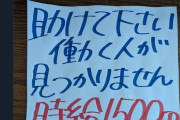 助けて下さい
働く人が
見つかりません
時給1500円